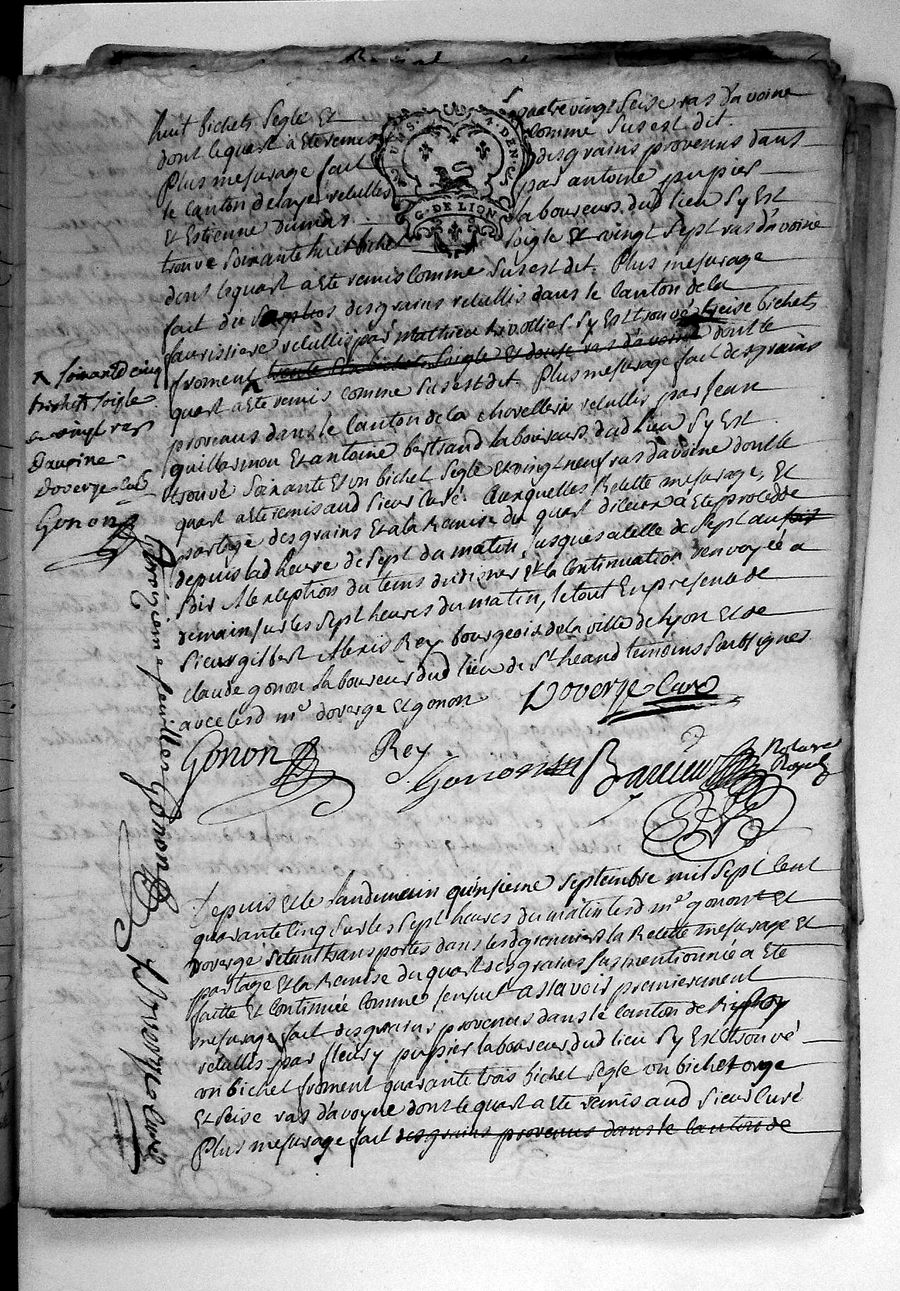 huit bichets segle Et quatre vingt seise ras d'avoine
dont le quart a Ete remis comme sus est dit.
Plus mesurage fait des grains provenus dans
le Canton de layer retullés par antoine pupier
Et Estienne dumas laboureurs dud lieu sy Est
trouvé soixante huit bichets soigle Et vingt sept ras d'avoine
dont le quart a Ete remis Comme sus est dit. Plus mesurage
fait du des grains retullis dans le Canton de la
faurissiere retullis par mathieu rivollier sy Est trouvé treise bichets
froment trente six bichets soigle Et douse ras d'avoine dont le
quart a Ete remis comme sus est dit. Plus mesurage fait des grains
provenus dans le Canton de la chovellerie retullis par Jean
guillarmou Et antoine bertrand laboureurs dud lieu sy Est
trouvé soixante Et un bichet segle Et vingt neuf ras d'avoine dont le
quart a Ete remis aud sieur Curé. Auxquelles Retette mesurage, Et
partage des grains Et a la Remise du quart diceux a Ete procedde
depuis lad heure de sept du matin, jusques a telle de sept du soit
soir a l'exception du tems du digner et la Continuation renvoyée a
demain sur les sept heures du matin, le tout En presente de
sieur gilbert Alexis Rey bourgeois de la ville de lyon et de
claude gonon laboureur dud lieu de St heand temoins soussignes
avec lesd mr doverge et gonon Doverge Curé
Gonon Rey Gonon Barrieu Notaire Royal
A soixante cinq
bichets soigle
Et vingt ras
d'avoine
doverge Curé
Gonon
G. DE LION
onzieme feuillet Gonon Doverge Curé
Depuis et le landemain quinsieme septembre mil sept Cent
quarante cinq sur les sept heures du matin lesd mr gonon Et
doverge s'etant transportes dans lesd greniers la Retette mesurage Et
partage Et la Remise du quart des grains sus mentionnée a Ete
faitte Et Continuée Comme s'ensuit a sçavoir premierement
mesurage fait des grains provenus dans le Canton de
retullés par fleury pupier laboureur dud lieu sy Est trouvé
un bichet froment quarante trois bichet segle un bichet orge
Et seise ras d'avoyne dont le quart a Ete remis aud sieur Curé
Plus mesurage fait des grains provenus dans le Canton de